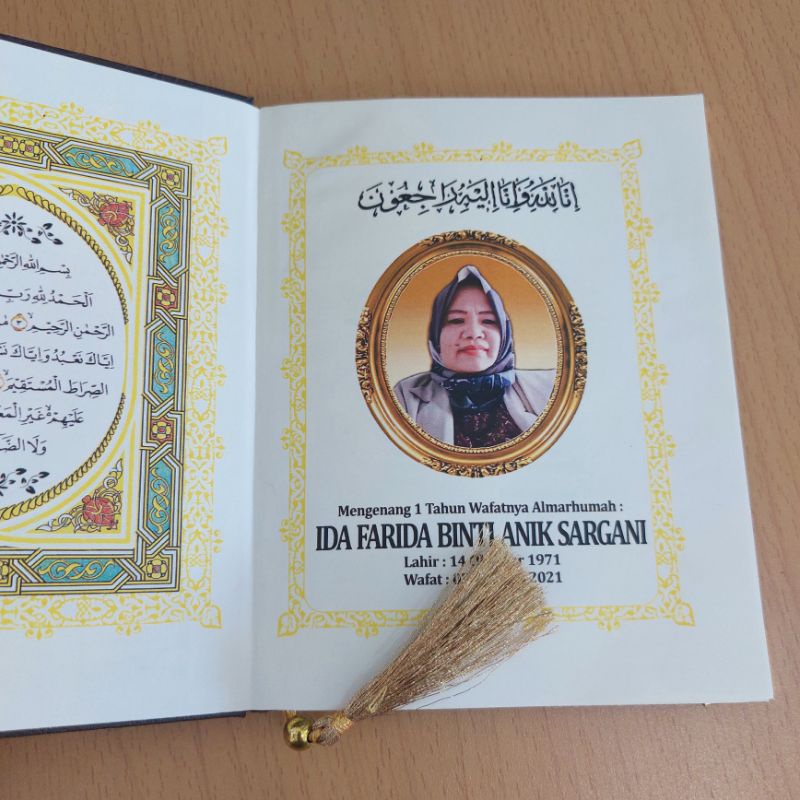 بِسْمِ اللهِ
اَلْحَمْدُ لِلّٰهِ رَبِّ
الرَّحْمٰنِ الرَّحِيْمِ ٣
اِيَّاكَ نَعْبُدُ وَاِيَّاكَ
الصِّرَاطَ الْمُسْتَقِيْمَ
عَلَيْهِمْ غَيْرِ
وَلَا
اِنَّا لِلّٰهِ وَاِنَّا اِلَيْهِ رَاجِعُوْنَ
Mengenang 1 Tahun Wafatnya Almarhumah :
IDA FARIDA BINTI ANIK SARGANI
Lahir : 14 1971
Wafat : 2021